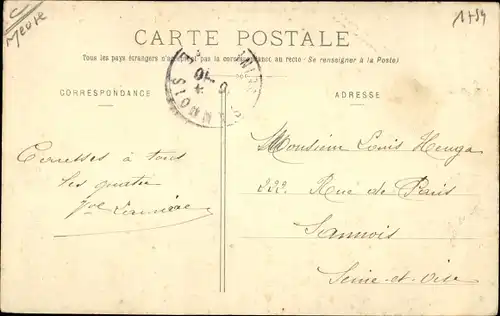 Meuse
1+54
CARTE POSTALE
Tous les pays étrangers n'acceptent pas la correspondance au recto (Se renseigner à la Poste)
CORRESPONDANCE
ADRESSE
SANNOIS
Caresses à tous
les quatre
Monsieur Louis Henga
222, Rue de Paris
Sannois
Seine-et-Oise